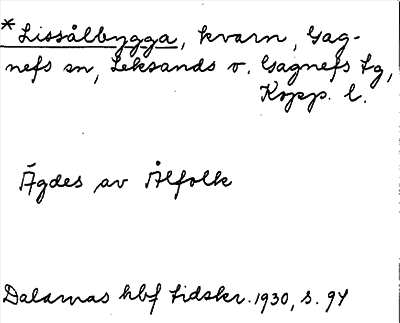 *Lissålbygga, kvarn, Gag-
nefs sn, Leksands o. Gagnefs tg,
Kopp. l.
Ägdes av Ålfolk
Dalarnas hbf tidskr. 1930, s. 94